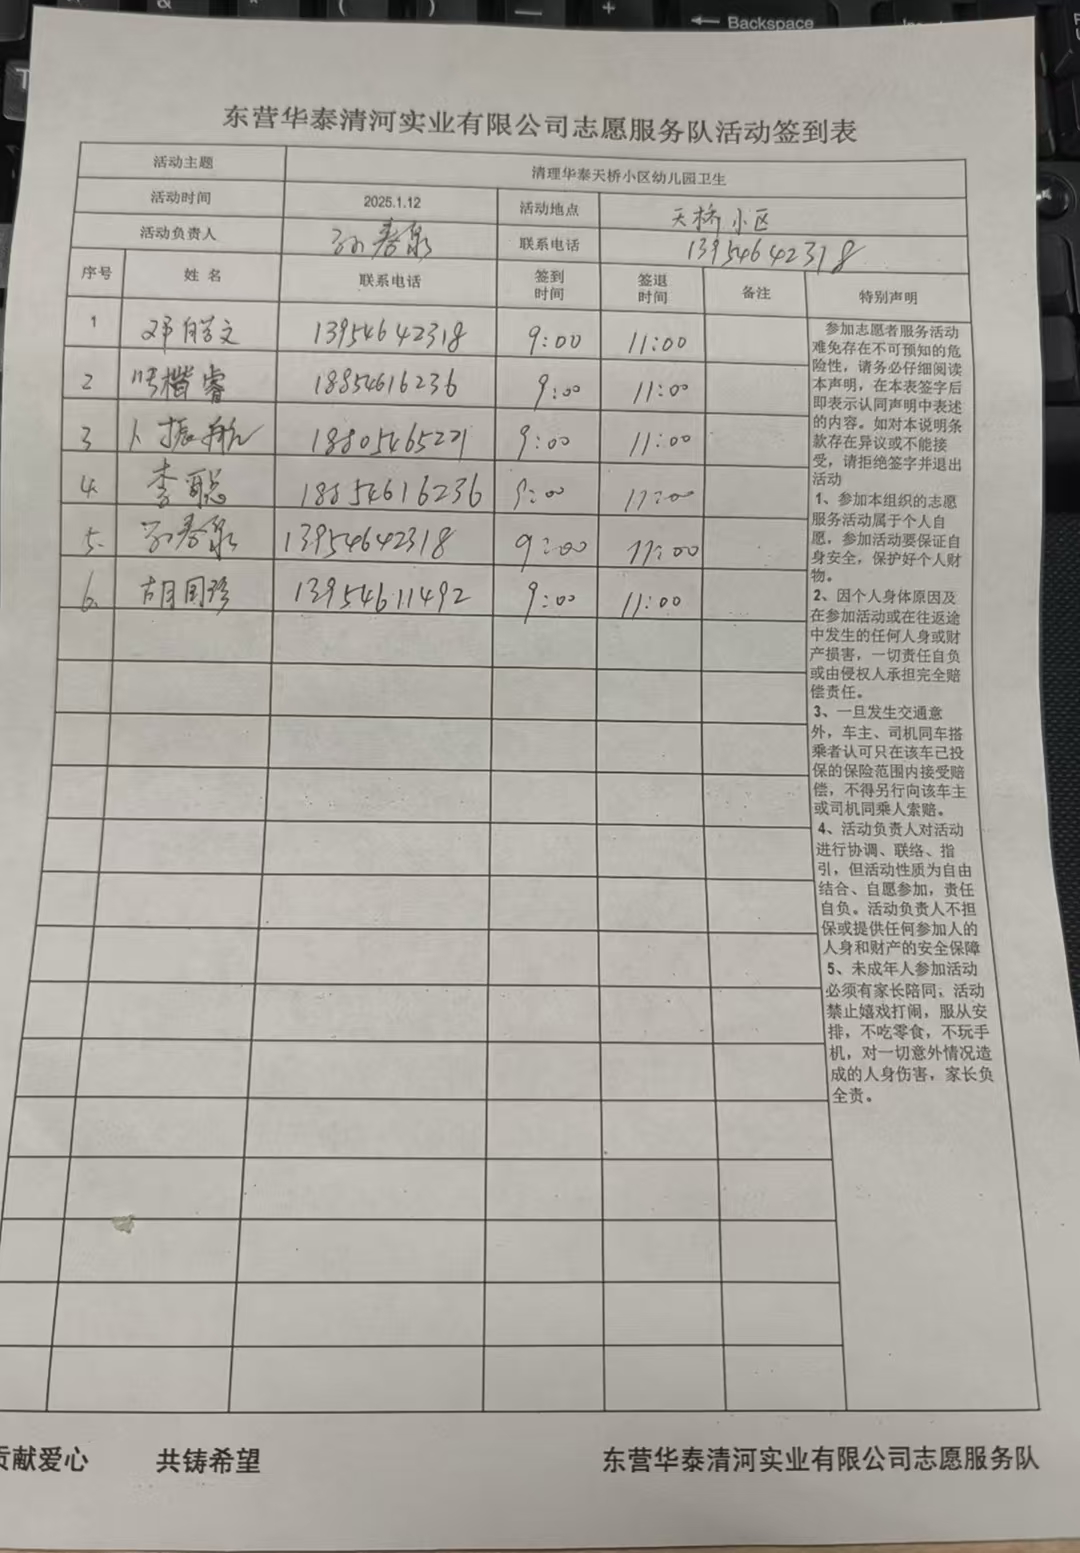 Backspace
东营华泰清河实业有限公司志愿服务队活动签到表
活动主题 清理华泰天桥小区幼儿园卫生
活动时间 2025.1.12 活动地点 天桥小区
活动负责人 孙春泉 联系电话 13954642318
序号 姓名 联系电话 签到时间 签退时间 备注 特别声明
1 邓皓文 13954642318 9:00 11:00
2 楷睿 18854616236 9:00 11:00
3 卜振航 18805465221 9:00 11:00
4. 李聪 18854616236 9:00 11:00
5. 孙春泉 13954642318 9:00 11:00
6. 胡国珍 13954611492 9:00 11:00
参加志愿者服务活动
难免存在不可预知的危
险性，请务必仔细阅读
本声明，在本表签字后
即表示认同声明中表述
的内容。如对本说明条
款存在异议或不能接
受，请拒绝签字并退出
活动
1、参加本组织的志愿
服务活动属于个人自
愿，参加活动要保证自
身安全，保护好个人财
物。
2、因个人身体原因及
在参加活动或在往返途
中发生的任何人身或财
产损害，一切责任自负
或由侵权人承担完全赔
偿责任。
3、一旦发生交通意
外，车主、司机同车搭
乘者认可只在该车已投
保的保险范围内接受赔
偿，不得另行向该车主
或司机同乘人索赔。
4、活动负责人对活动
进行协调、联络、指
引，但活动性质为自由
结合、自愿参加，责任
自负。活动负责人不担
保或提供任何参加人的
人身和财产的安全保障
5、未成年人参加活动
必须有家长陪同，活动
禁止嬉戏打闹，服从安
排，不吃零食，不玩手
机，对一切意外情况造
成的人身伤害，家长负
全责。
贡献爱心 共铸希望 东营华泰清河实业有限公司志愿服务队